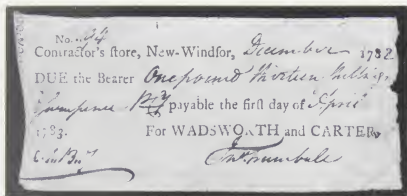 No. 94
Contractor's store, New-Windsor, December 1782
DUE the Bearer One pound thirteen shillings
payable the first day of April
1783. For WADSWORTH and CARTER.
Trumbull